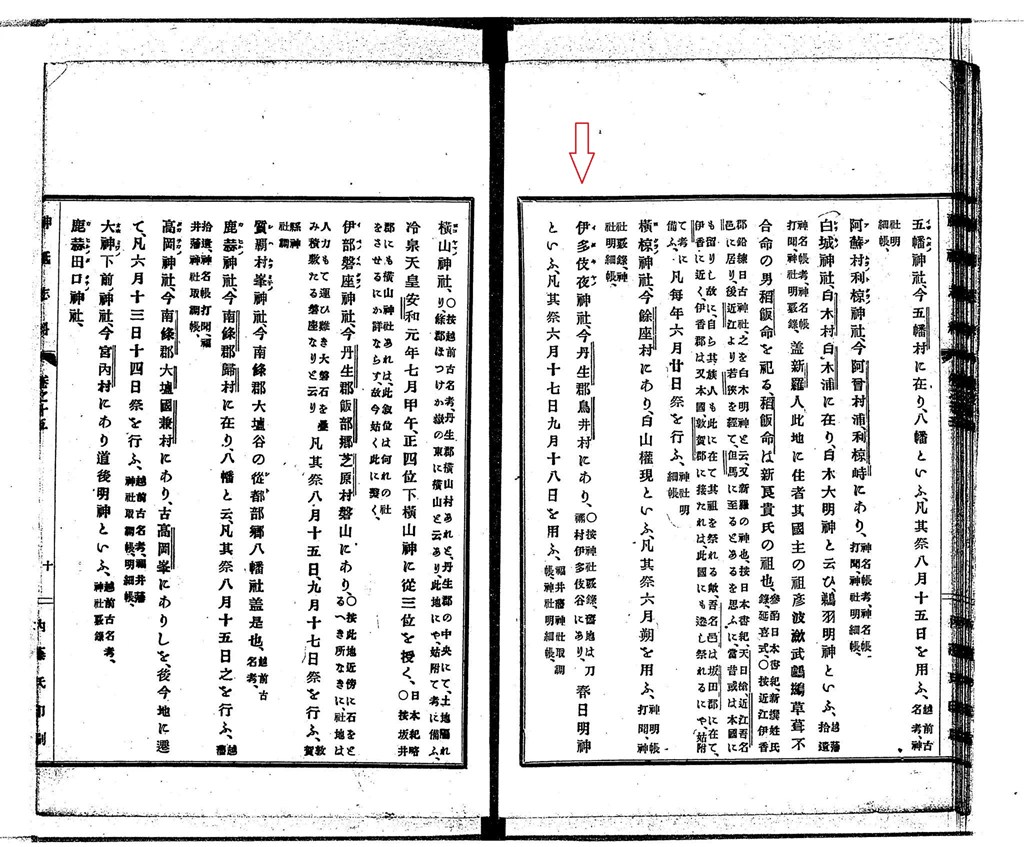 五幡神社、今五幡村に在り、八幡といふ、凡其祭八月十五日を用ふ、越前古名考、神
社明細帳、
阿蘇村利椋神社、今阿曾村浦、利椋峙にあり、神名帳考、神名帳打聞、神社明細帳、
白城神社、白木村白木浦に在り、白木大明神と云ひ、鵜羽明神といふ、越藩拾遺
神名帳考、神名帳打聞、神社明覈錄、
蓋新羅人此地に住者其國主の祖彥波瀲武鸕鷀草葺不
合命の男稻飯命を祀る、稻飯命は新良貴氏の祖也、參酌日本書紀、新撰姓氏錄、延喜式、〇按近江伊香
郡鉛練日古神社、之を白木明神と云、又新羅の神也、按日本書紀、天日槍、近江吾名
邑に居り後近江より若狹を經て、但馬に至るとあるを思ふに當昔或は本國に
も留りし故に、自ら其族人も此に在て其祖を祭れる歟、吾名邑は坂田郡に在て、
伊香に近く、伊香郡は又本國、敦賀郡に接たれは、此國にも遷し祭れるにや、姑附
て考に備ふ、凡每年六月廿日祭を行ふ、神社明細帳、
橫椋神社、今餘座村にあり、白山權現といふ、凡其祭六月朔を用ふ、神明帳打聞、神
社覈錄、神社明細帳、
伊多伎夜神社、今丹生郡鳥井村にあり、〇按神社覈錄、舊地は刀禰村伊多伎谷にあり、春日明神
といふ、凡其祭六月十七日九月十八日を用ふ、福井藩神社取調帳、神社明細帳、
橫山神社、〇按越前古名考、丹生郡橫山村あれど、丹生郡の中央にて、土地隔れ
り、餘郡ほつけか嶽の東に橫山と云あり此地にや、姑附て考に備ふ、
冷泉天皇安和元年七月甲午正四位下橫山神に從三位を授く、日本紀略〇按坂井
郡にも橫山神社あれは、此叙位は何れの社
をさせるにか詳ならす、故今姑く此に繫く、
伊部磐座神社、今丹生郡飯部鄕芝原村磐山にあり、〇按此地近傍に石をとるへき所なきに、社地は
人力もて運ひ難き大磐石を疊
み積敷たる磐座なりと云り 凡其祭八月十五日、九月十七日祭を行ふ、敦賀
縣神社調
質覇村峯神社、今南條郡大壇谷の從都部鄕八幡社蓋是也、越前古名考、
鹿蒜神社、今南條郡歸村に在り、八幡と云、凡其祭八月十五日之を行ふ、越藩
拾遺、神名帳打聞、福井藩神社取調帳、
高岡神社、今南條郡大壇國兼村にあり、古高岡峯にありしを、後今地に遷
て、凡六月十三日十四日祭を行ふ、越前古名考、福井藩神社取調帳、明細帳、
大神下前神社、今宮內村にあり道後明神といふ、越前古名考、神社覈錄
鹿蒜田口神社、
十
內藤氏印刷